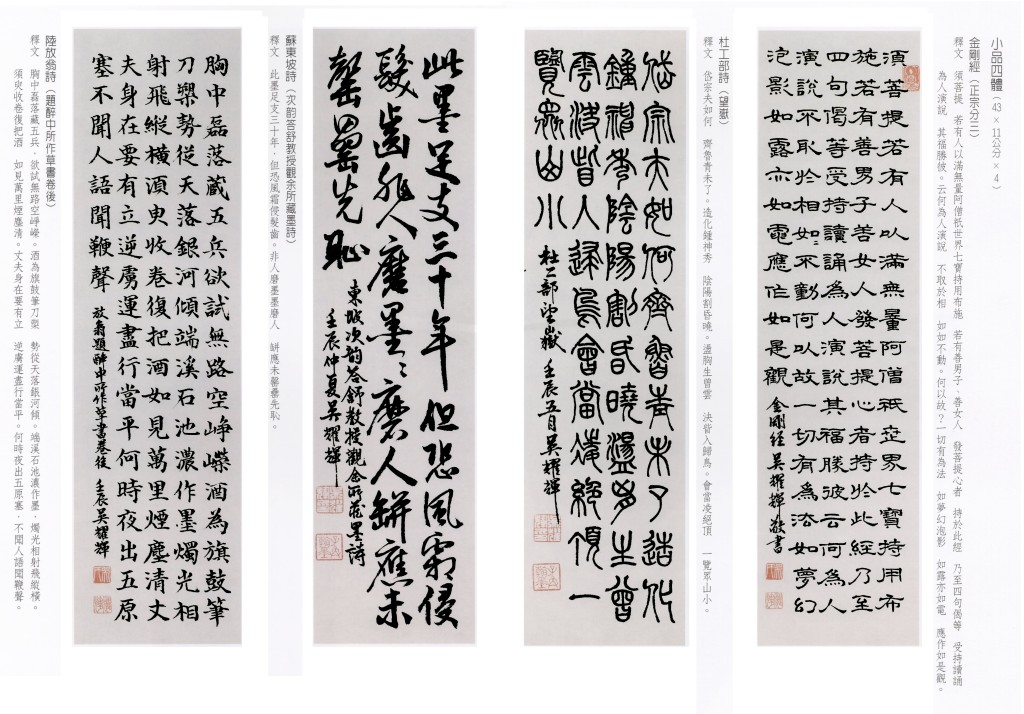 小品四體（43×11公分×4）
金剛經（正宗分三）
釋文　須菩提　若有人以滿無量阿僧祇世界七寶持用布施　若有善男子　善女人　發菩提心者　持於此經　乃至四句偈等　受持讀誦
為人演說　其福勝彼。云何為人演說　不取於相　如如不動。何以故？一切有為法　如夢幻泡影　如露亦如電　應作如是觀。
須菩提若有人以滿無量阿僧祇世界七寶持用布
施若有善男子善女人發菩提心者持於此經乃至
四句偈等受持讀誦為人演說其福勝彼云何為人
演說不取於相如如不動何以故一切有為法如夢幻
泡影如露亦如電應作如是觀　金剛經　吳耀輝敬書
杜工部詩（望嶽）
釋文　岱宗夫如何　齊魯青未了。造化鍾神秀　陰陽割昏曉。盪胸生曾雲　決眥入歸鳥。會當凌絕頂　一覽眾山小。
岱宗夫如何齊魯青未了造化
鍾神秀陰陽割昏曉盪胸生曾
雲決眥入歸鳥會當凌絕頂一
覽眾山小　杜工部望嶽　壬辰五月吳耀輝
蘇東坡詩（次韵答舒教授觀余所藏墨詩）
釋文　此墨足支三十年．但恐風霜侵髮齒。非人磨墨墨磨人　缾應未罄罍先恥。
此墨足支三十年但恐風霜侵
髮齒非人磨墨墨磨人缾應未
罄罍先恥　東坡次韵答舒教授觀余所藏墨詩
壬辰仲夏吳耀輝
陸放翁詩（題醉中所作草書卷後）
釋文　胸中磊落藏五兵．欲試無路空崢嶸。酒為旗鼓筆刀槊　勢從天落銀河傾。端溪石池濃作墨．燭光相射飛縱橫。
須臾收卷復把酒　如見萬里煙塵清。丈夫身在要有立　逆虜運盡行當平。何時夜出五原塞．不聞人語聞鞭聲。
胸中磊落藏五兵欲試無路空崢嶸酒為旗鼓筆
刀槊勢從天落銀河傾端溪石池濃作墨燭光相
射飛縱橫須臾收卷復把酒如見萬里煙塵清丈
夫身在要有立逆虜運盡行當平何時夜出五原
塞不聞人語聞鞭聲　放翁題醉中所作草書卷後　壬辰吳耀輝